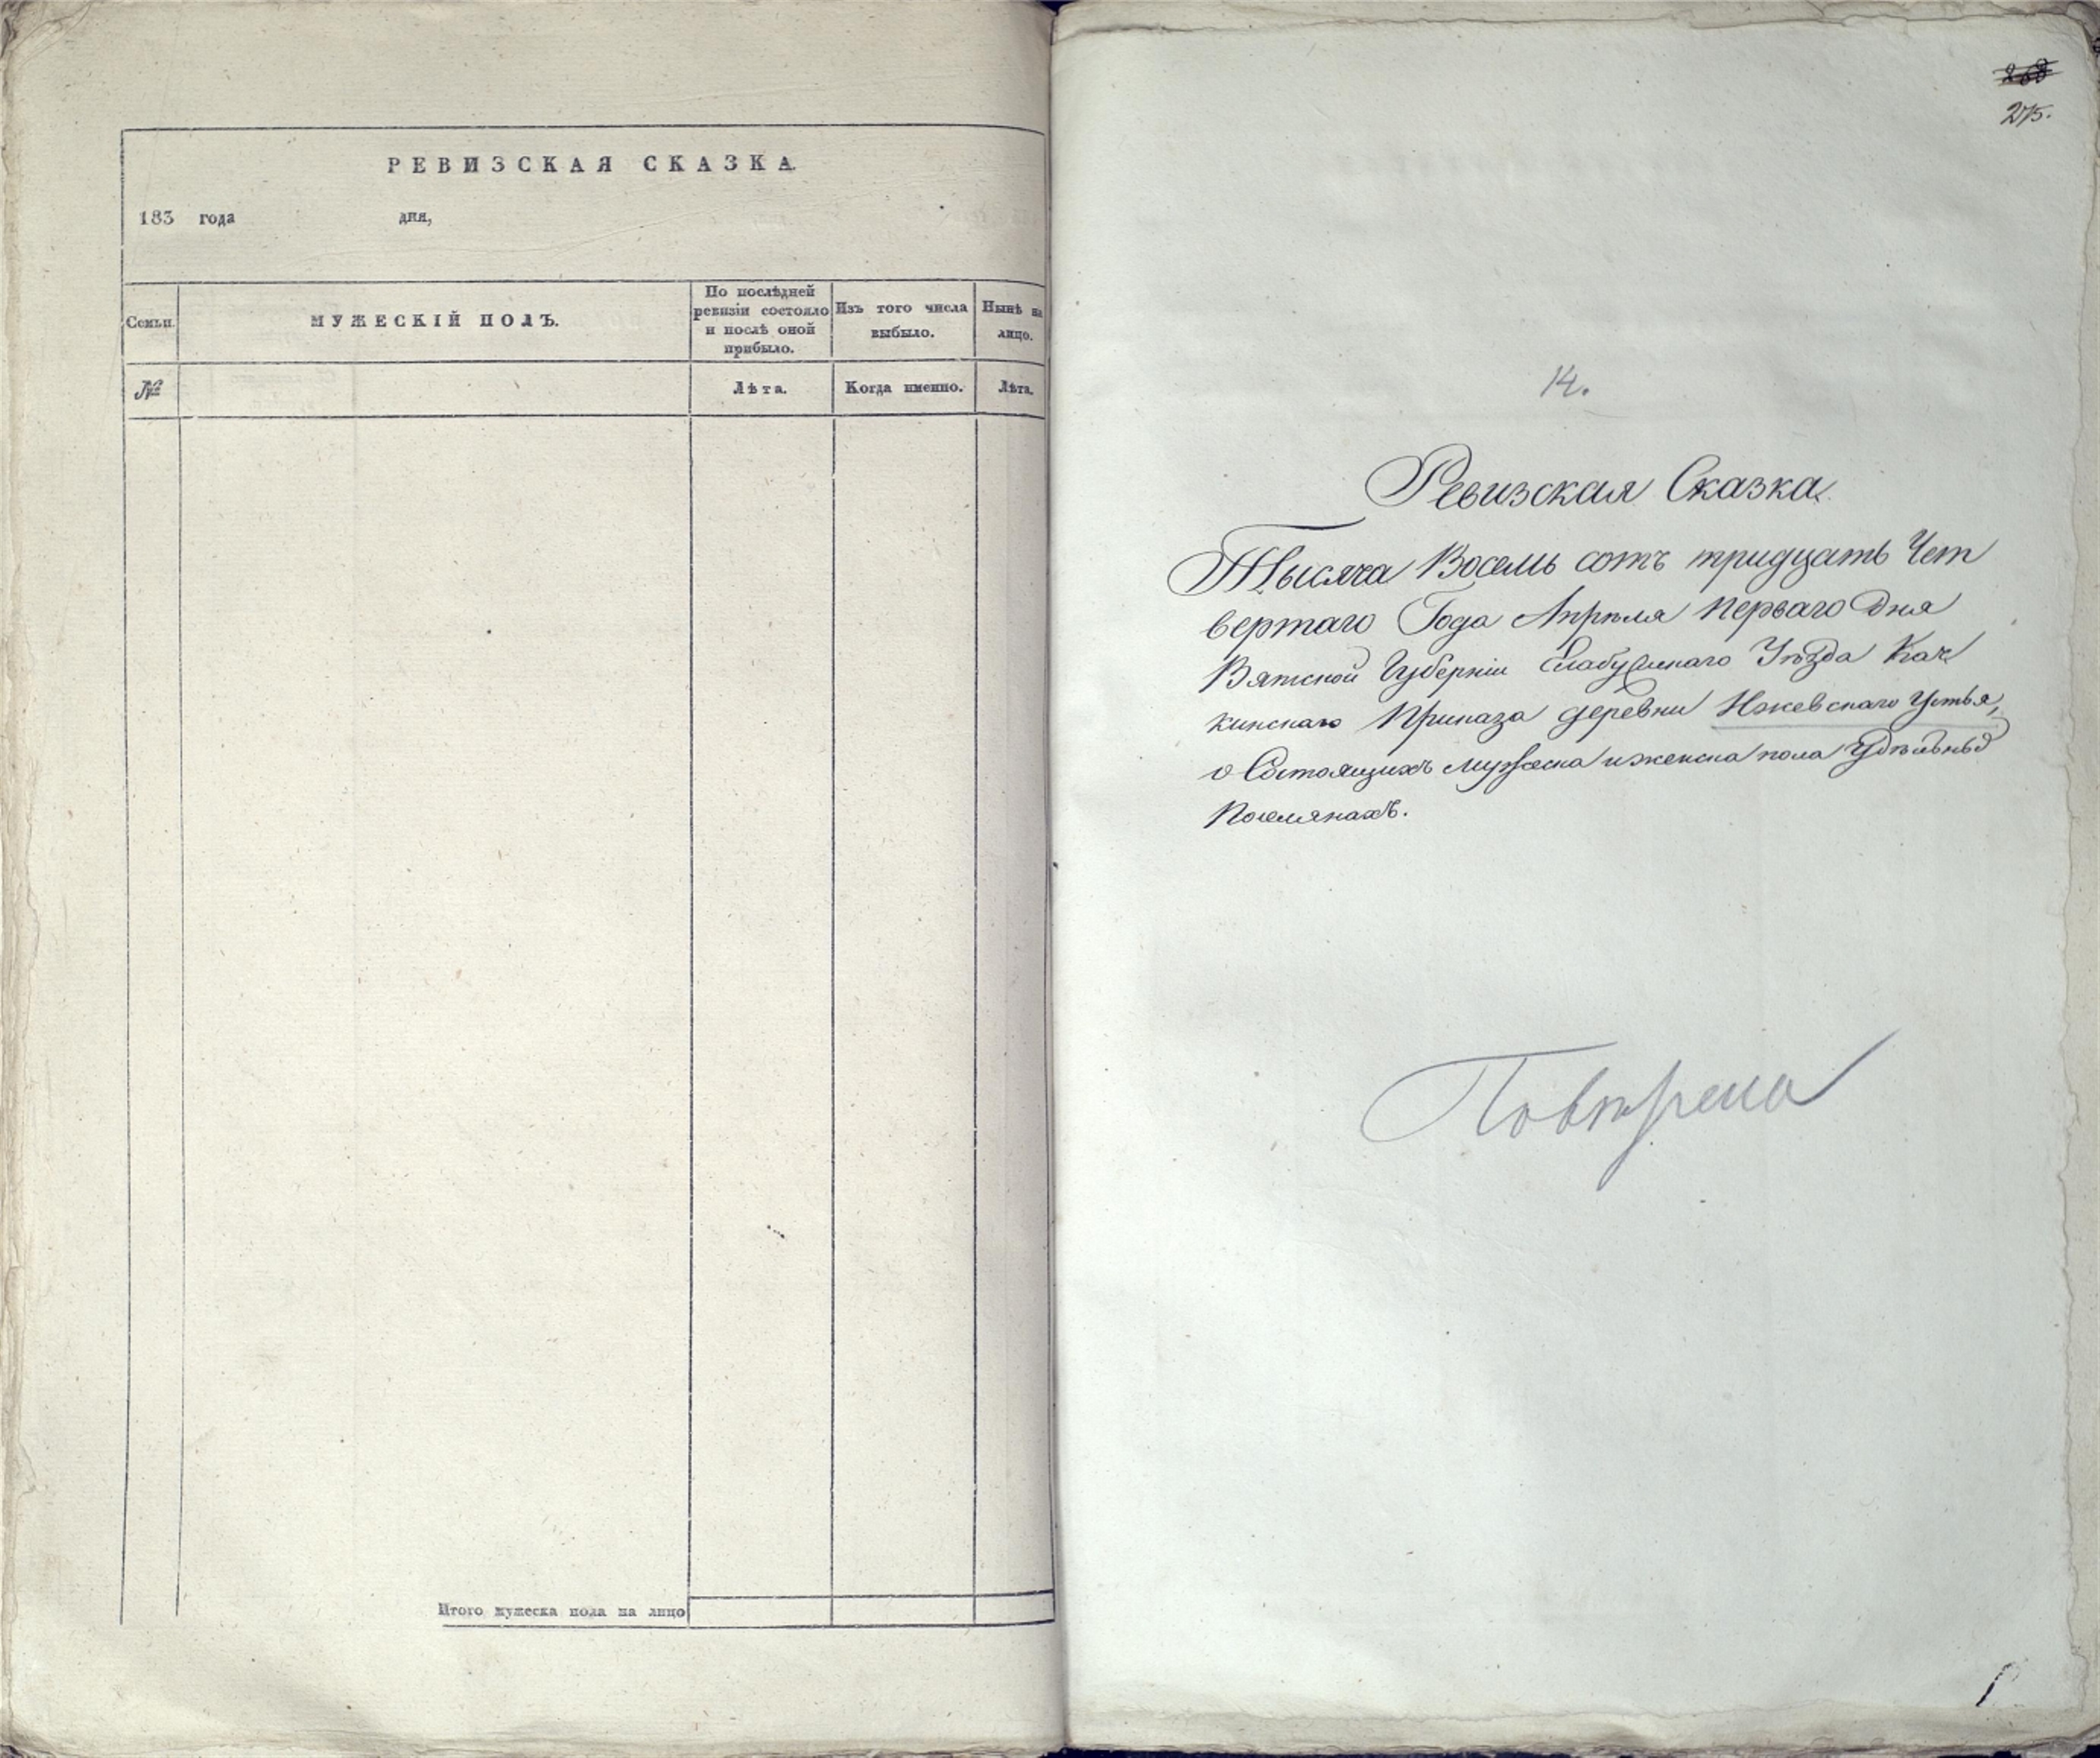 РЕВИЗСКАЯ СКАЗКА
183 года дня,
Семьи.
МУЖЕСКІЙ ПОЛЪ.
По послѣдней ревизіи состояло и послѣ оной прибыло.
Изъ того числа выбыло.
Нынѣ на лицо.
№
Лѣта.
Когда именно.
Лѣта.
Итого мужеска пола на лицо
268
275.
14.
Ревизская Сказка
Тысяча Восемь сотъ тридцать Чет
вертаго Года Апрѣля перваго дня
Вятской Губерніи Елабужскаго Уѣзда Кач
кинскаго Приказа деревни Ижевскаго Устья,
о Состоящихъ мужеска и женска пола Удѣльных
Поселянахъ.